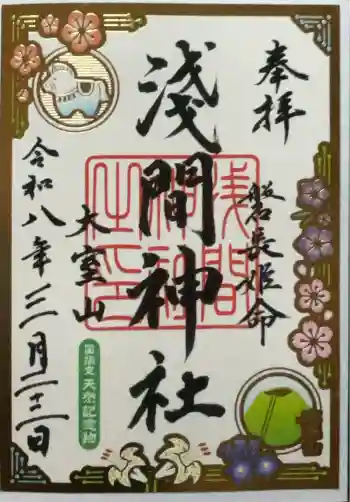 奉拝
磐長姫命
淺間神社
大室山
令和八年三月二十二日
浅間神社之印
国指定 天然記念物